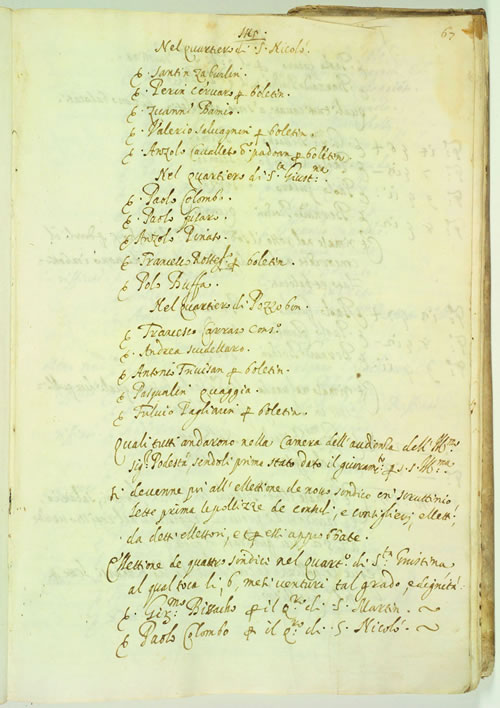 67
Nel quartiero di S. Nicolò.
Santin Zaburlin.
Perin Cervaro p boletin.
Zuanne Bamio.
Valerio Salvagnin p boletin.
Anzolo Cavalleto padoan p boletin
Nel quartiero di S.ta Giust.na
Paolo Colombo.
Paolo
Anzolo Pinato.
Francesco p boletin.
Polo Buffa.
Nel quartiero di Pozzobon.
Francesco Carraro Cons.o
Andrea Scudellaro.
Antonio Trivisan p boletin.
Pasqualin Quaggia.
Fulvio Pagliarin p boletin.
Quali tutti andarono nella Camera dell'audienza dell'Ill.mo
sig.r Podestà sendoli prima stato dato il giuram.to p s.s. Ill.ma
devenne poi all'ellettione de novo sondico con scruttinio
lette prima le pollizze de consuli, e consiglieri, elletti,
da detti ellettori, e p elli approbate.
Ellettione de quattro sondici nel quart.o di S.ta Giustina
al qual toca li, 6, mesi venturi tal grado, e dignità.
Gir.mo p il q.ro di S. Martin.
Paolo Colombo p il q.ro di S. Nicolò